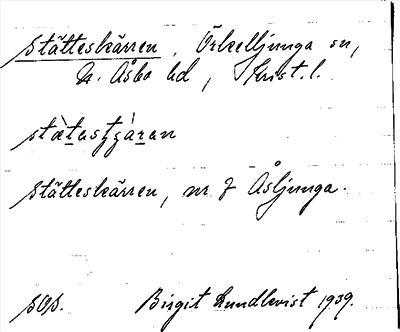 Stätteskärren, Örkelljunga sn,
N. Åsbo hd, Krist. l.
Stätteskärren, nr 7 Åsljunga.
sps.
Birgit Lundkvist 1939.